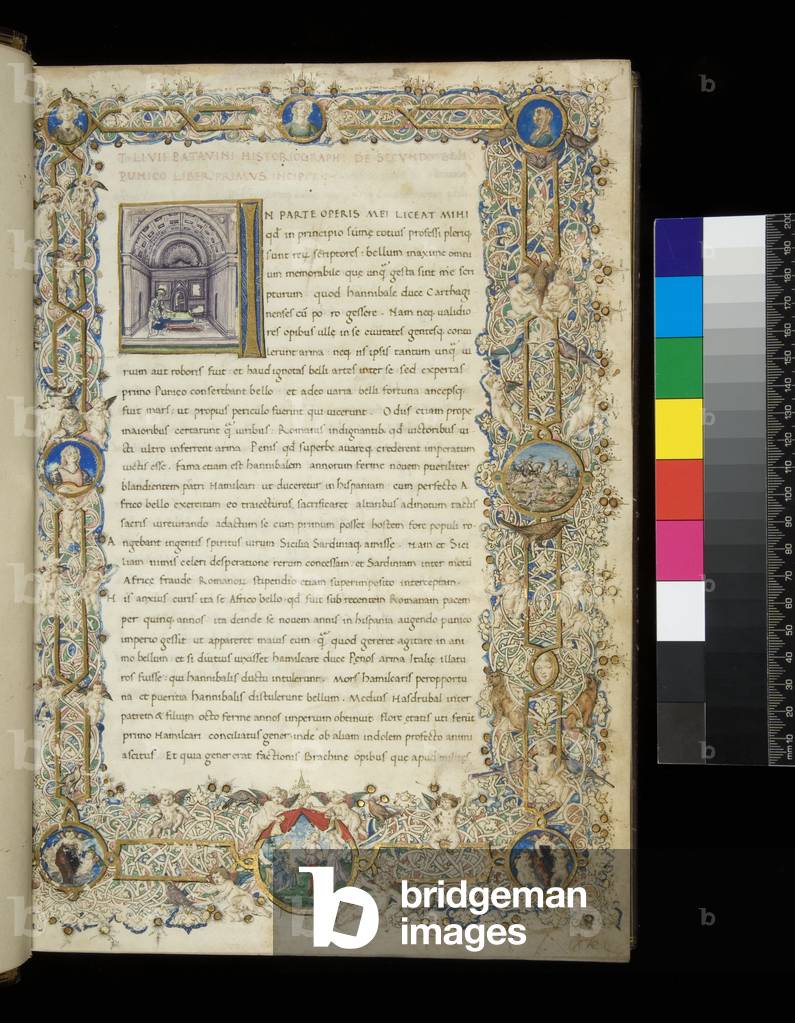 T. LIVII PATAVINI HISTORIOGRAPHI DE SECVNDO BELLO
PVNICO LIBER PRIMVS INCIPIT
IN PARTE OPERIS MEI LICEAT MIHI
qd in principio sume totius professi pleriq
sunt reru scriptores: bellum maxime omni
um memorabile que unq gesta sint me scri
pturum quod hannibale duce Carthagi
nenses cu po. ro gessere. Nam neq ualidio
res opibus ulle inse ciuitates gentesq contu
lerunt arma neq his ipsis tantum unq ui
rium aut roboris fuit. et haud ignotas belli artes inter se sed expertas
primo Punico conserebant bello et adeo uaria belli fortuna ancepsq
fuit mars: ut propius periculo fuerint qui uicerunt. Odiis etiam prope
maioribus certarunt q uiribus: Romanis indignantib. qd uictoribus ui
cti ultro inferrent arma. Penis qd superbe auareq crederent imperatum
uictis esse. Fama etiam est hannibalem annorum ferme nouem pueriliter
blandientem patri Hamilcari ut duceretur in hispaniam cum perfecto A
frico bello exercitum eo traiecturus sacrificaret altaribus admotum tactis
sacris iureiurando adactum se cum primum posset hostem fore populi ro
A ngebant ingentis spiritus uirum Sicilia Sardiniaq amisse. Nam et Sici
liam nimis celeri desperatione rerum concessam et Sardiniam inter motu
Africe fraude Romanou stipendio etiam superimposito interceptam
H is anxius curis ita se Africo bello qd fuit sub recentem Romanam pacem
per quinq annos ita deinde se nouem annis in hispania augendo punico
imperio gessit ut appareret maius eum q quod gereret agitare in ani
mo bellum et si diutius uixisset hamilcare duce Penos arma Italie illatu
ros fuisse: qui hannibalis ductu intulerunt. Mors hamilcaris peroportu
na et pueritia hannibalis distulerunt bellum. Medius Hasdrubal inter
patrem & filium octo ferme annos imperium obtinuit flore etatis uti ferut
primo Hamilcari conciliatus gener inde ob aliam indolem profecto animi
ascitus Et quia gener erat factionis Brachine opibus que apud milites
b bridgeman
images